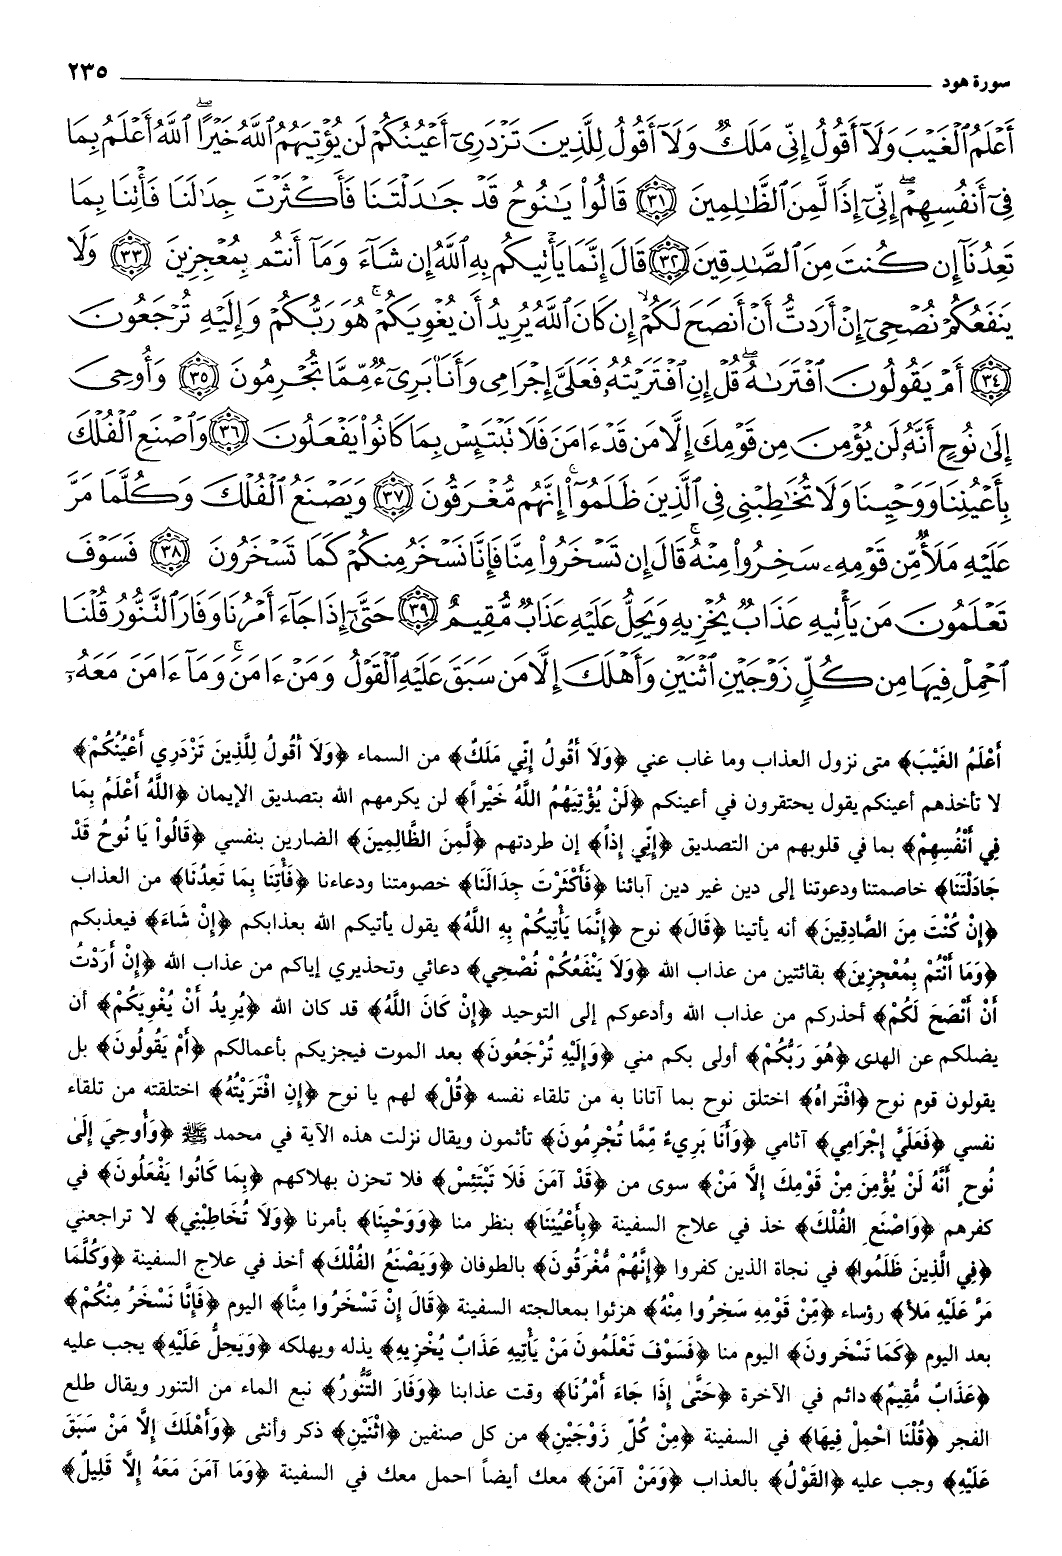 سورة هود ٢٣٥
أَعْلَمُ ٱلْغَيْبَ وَلَآ أَقُولُ إِنِّى مَلَكٌ وَلَآ أَقُولُ لِلَّذِينَ تَزْدَرِىٓ أَعْيُنُكُمْ لَن يُؤْتِيَهُمُ ٱللَّهُ خَيْرًا ۖ ٱللَّهُ أَعْلَمُ بِمَا
فِىٓ أَنفُسِهِمْ ۖ إِنِّىٓ إِذًا لَّمِنَ ٱلظَّـٰلِمِينَ ﴿٣١﴾ قَالُوا۟ يَـٰنُوحُ قَدْ جَـٰدَلْتَنَا فَأَكْثَرْتَ جِدَٰلَنَا فَأْتِنَا بِمَا
تَعِدُنَآ إِن كُنتَ مِنَ ٱلصَّـٰدِقِينَ ﴿٣٢﴾ قَالَ إِنَّمَا يَأْتِيكُم بِهِ ٱللَّهُ إِن شَآءَ وَمَآ أَنتُم بِمُعْجِزِينَ ﴿٣٣﴾ وَلَا
يَنفَعُكُمْ نُصْحِىٓ إِنْ أَرَدتُّ أَنْ أَنصَحَ لَكُمْ إِن كَانَ ٱللَّهُ يُرِيدُ أَن يُغْوِيَكُمْ ۚ هُوَ رَبُّكُمْ وَإِلَيْهِ تُرْجَعُونَ
﴿٣٤﴾ أَمْ يَقُولُونَ ٱفْتَرَىٰهُ ۖ قُلْ إِنِ ٱفْتَرَيْتُهُۥ فَعَلَىَّ إِجْرَامِى وَأَنَا۠ بَرِىٓءٌ مِّمَّا تُجْرِمُونَ ﴿٣٥﴾ وَأُوحِىَ
إِلَىٰ نُوحٍ أَنَّهُۥ لَن يُؤْمِنَ مِن قَوْمِكَ إِلَّا مَن قَدْ ءَامَنَ فَلَا تَبْتَئِسْ بِمَا كَانُوا۟ يَفْعَلُونَ ﴿٣٦﴾ وَٱصْنَعِ ٱلْفُلْكَ
بِأَعْيُنِنَا وَوَحْيِنَا وَلَا تُخَـٰطِبْنِى فِى ٱلَّذِينَ ظَلَمُوٓا۟ ۚ إِنَّهُم مُّغْرَقُونَ ﴿٣٧﴾ وَيَصْنَعُ ٱلْفُلْكَ وَكُلَّمَا مَرَّ
عَلَيْهِ مَلَأٌ مِّن قَوْمِهِۦ سَخِرُوا۟ مِنْهُ ۚ قَالَ إِن تَسْخَرُوا۟ مِنَّا فَإِنَّا نَسْخَرُ مِنكُمْ كَمَا تَسْخَرُونَ ﴿٣٨﴾ فَسَوْفَ
تَعْلَمُونَ مَن يَأْتِيهِ عَذَابٌ يُخْزِيهِ وَيَحِلُّ عَلَيْهِ عَذَابٌ مُّقِيمٌ ﴿٣٩﴾ حَتَّىٰٓ إِذَا جَآءَ أَمْرُنَا وَفَارَ ٱلتَّنُّورُ قُلْنَا
ٱحْمِلْ فِيهَا مِن كُلٍّ زَوْجَيْنِ ٱثْنَيْنِ وَأَهْلَكَ إِلَّا مَن سَبَقَ عَلَيْهِ ٱلْقَوْلُ وَمَنْ ءَامَنَ ۚ وَمَآ ءَامَنَ مَعَهُۥٓ
أَعْلَمُ الغَيْبَ﴾ متى نزول العذاب وما غاب عني ﴿وَلَا أَقُولُ إِنِّي مَلَكٌ﴾ من السماء ﴿وَلَا أَقُولُ لِلَّذِينَ تَزْدَرِي أَعْيُنُكُمْ﴾
لا تأخذهم أعينكم يقول يحتقرون في أعينكم ﴿لَنْ يُؤْتِيَهُمُ اللَّهُ خَيْراً﴾ لن يكرمهم الله بتصديق الإيمان ﴿اللَّهُ أَعْلَمُ بِمَا
فِي أَنْفُسِهِمْ﴾ بما في قلوبهم من التصديق ﴿إِنِّي إِذاً﴾ إن طردتهم ﴿لَّمِنَ الظَّالِمِينَ﴾ الضارين بنفسي ﴿قَالُوا يَا نُوحُ قَدْ
جَادَلْتَنَا﴾ خاصمتنا ودعوتنا إلى دين غير دين آبائنا ﴿فَأَكْثَرْتَ جِدَالَنَا﴾ خصومتنا ودعاءنا ﴿فَأْتِنَا بِمَا تَعِدُنَا﴾ من العذاب
﴿إِنْ كُنْتَ مِنَ الصَّادِقِينَ﴾ أنه يأتينا ﴿قَالَ﴾ نوح ﴿إِنَّمَا يَأْتِيكُمْ بِهِ اللَّهُ﴾ يقول يأتيكم الله بعذابكم ﴿إِنْ شَاءَ﴾ فيعذبكم
﴿وَمَا أَنْتُمْ بِمُعْجِزِينَ﴾ بفائتين من عذاب الله ﴿وَلَا يَنْفَعُكُمْ نُصْحِي﴾ دعائي وتحذيري إياكم من عذاب الله ﴿إِنْ أَرَدْتُ
أَنْ أَنْصَحَ لَكُمْ﴾ أحذركم من عذاب الله وأدعوكم إلى التوحيد ﴿إِنْ كَانَ اللَّهُ﴾ قد كان الله ﴿يُرِيدُ أَنْ يُغْوِيَكُمْ﴾ أن
يضلكم عن الهدى ﴿هُوَ رَبُّكُمْ﴾ أولى بكم مني ﴿وَإِلَيْهِ تُرْجَعُونَ﴾ بعد الموت فيجزيكم بأعمالكم ﴿أَمْ يَقُولُونَ﴾ بل
يقولون قوم نوح ﴿افْتَرَاهُ﴾ اختلق نوح بما آتانا به من تلقاء نفسه ﴿قُلْ﴾ لهم يا نوح ﴿إِنِ افْتَرَيْتُهُ﴾ اختلقته من تلقاء
نفسي ﴿فَعَلَيَّ إِجْرَامِي﴾ آثامي ﴿وَأَنَا بَرِيءٌ مِّمَّا تُجْرِمُونَ﴾ تأثمون ويقال نزلت هذه الآية في محمد ﷺ ﴿وَأُوحِيَ إِلَىٰ
نُوحٍ أَنَّهُ لَنْ يُؤْمِنَ مِنْ قَوْمِكَ إِلَّا مَنْ﴾ سوى من ﴿قَدْ آمَنَ فَلَا تَبْتَئِسْ﴾ فلا تحزن بهلاكهم ﴿بِمَا كَانُوا يَفْعَلُونَ﴾ في
كفرهم ﴿وَاصْنَعِ الفُلْكَ﴾ خذ في علاج السفينة ﴿بِأَعْيُنِنَا﴾ بنظر منا ﴿وَوَحْيِنَا﴾ بأمرنا ﴿وَلَا تُخَاطِبْنِي﴾ لا تراجعني
﴿فِي الَّذِينَ ظَلَمُوا﴾ في نجاة الذين كفروا ﴿إِنَّهُمْ مُّغْرَقُونَ﴾ بالطوفان ﴿وَيَصْنَعُ الفُلْكَ﴾ أخذ في علاج السفينة ﴿وَكُلَّمَا
مَرَّ عَلَيْهِ مَلَأٌ﴾ رؤساء ﴿مِّنْ قَوْمِهِ سَخِرُوا مِنْهُ﴾ هزئوا بمعالجته السفينة ﴿قَالَ إِنْ تَسْخَرُوا مِنَّا﴾ اليوم ﴿فَإِنَّا نَسْخَرُ مِنكُمْ﴾
بعد اليوم ﴿كَمَا تَسْخَرونَ﴾ اليوم منا ﴿فَسَوْفَ تَعْلَمُونَ مَنْ يَأْتِيهِ عَذَابٌ يُخْزِيهِ﴾ يذله ويهلكه ﴿وَيَحِلُّ عَلَيْهِ﴾ يجب عليه
﴿عَذَابٌ مُّقِيمٌ﴾ دائم في الآخرة ﴿حَتَّىٰ إِذَا جَاءَ أَمْرُنَا﴾ وقت عذابنا ﴿وَفَارَ التَّنُّورُ﴾ نبع الماء من التنور ويقال طلع
الفجر ﴿قُلْنَا احْمِلْ فِيهَا﴾ في السفينة ﴿مِنْ كُلٍّ زَوْجَيْنِ﴾ من كل صنفين ﴿اثْنَيْنِ﴾ ذكر وأنثى ﴿وَأَهْلَكَ إِلَّا مَنْ سَبَقَ
عَلَيْهِ﴾ وجب عليه ﴿القَوْلُ﴾ بالعذاب ﴿وَمَنْ آمَنَ﴾ معك أيضاً احمل معك في السفينة ﴿وَمَا آمَنَ مَعَهُ إِلَّا قَلِيلٌ﴾